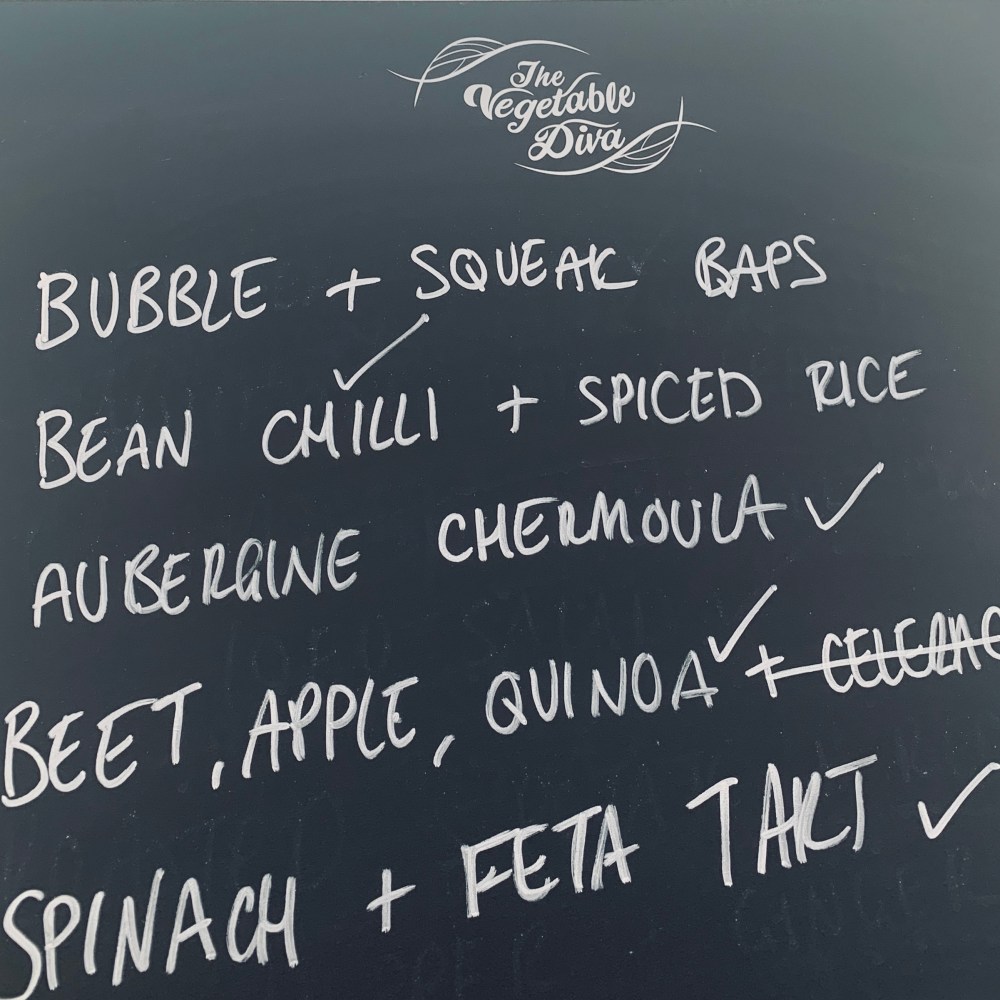 The
Vegetable
Diva
BUBBLE + SQUEAK BAPS
BEAN CHILLI + SPICED RICE
AUBERGINE CHERMOULA ✓
BEET, APPLE, QUINOA ✓ + CELERIAC
SPINACH + FETA TART ✓